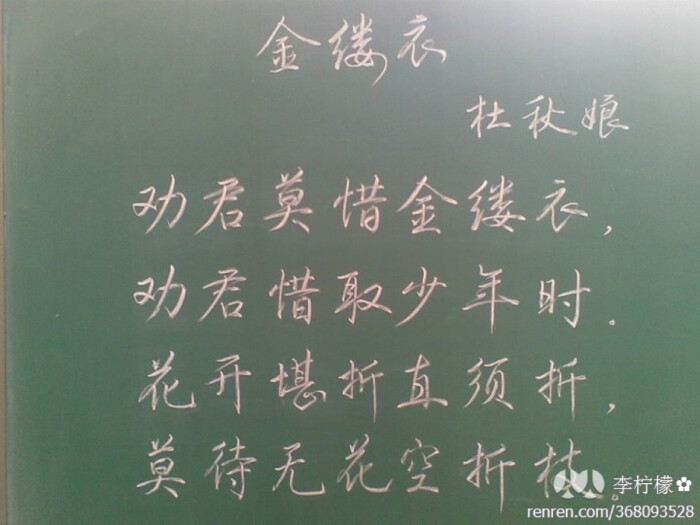 金缕衣
杜秋娘
劝君莫惜金缕衣，
劝君惜取少年时。
花开堪折直须折，
莫待无花空折枝。
李柠檬✿
renren.com/368093528